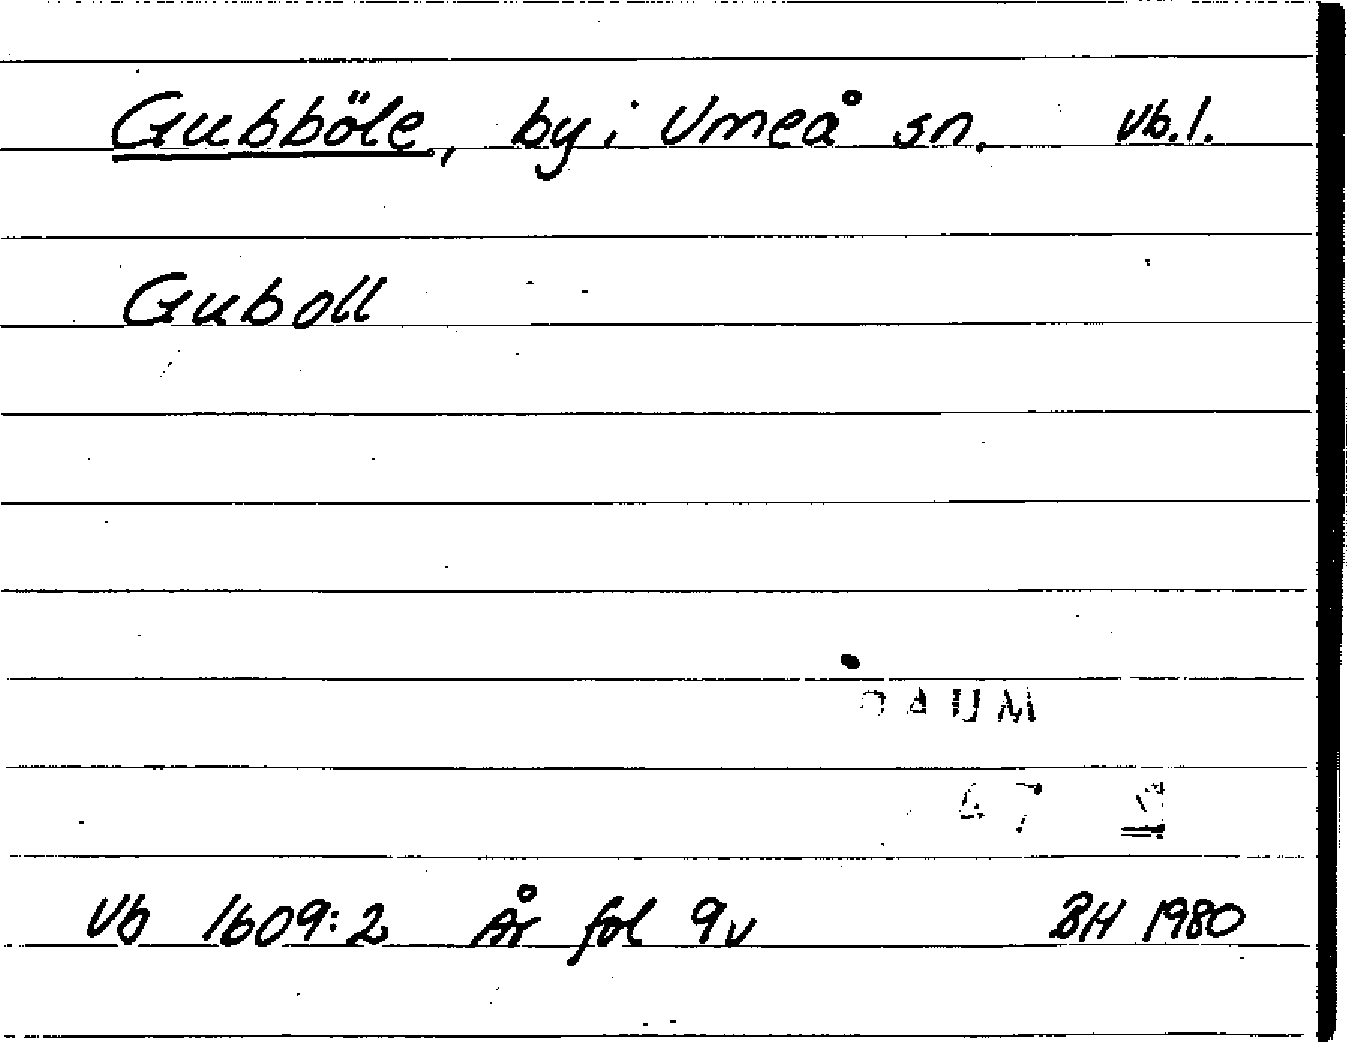 Gubböle, by i Umeå sn. Vb.l.
Guboll
DAUM
Vb 1609:2 År fol 9v BH 1980